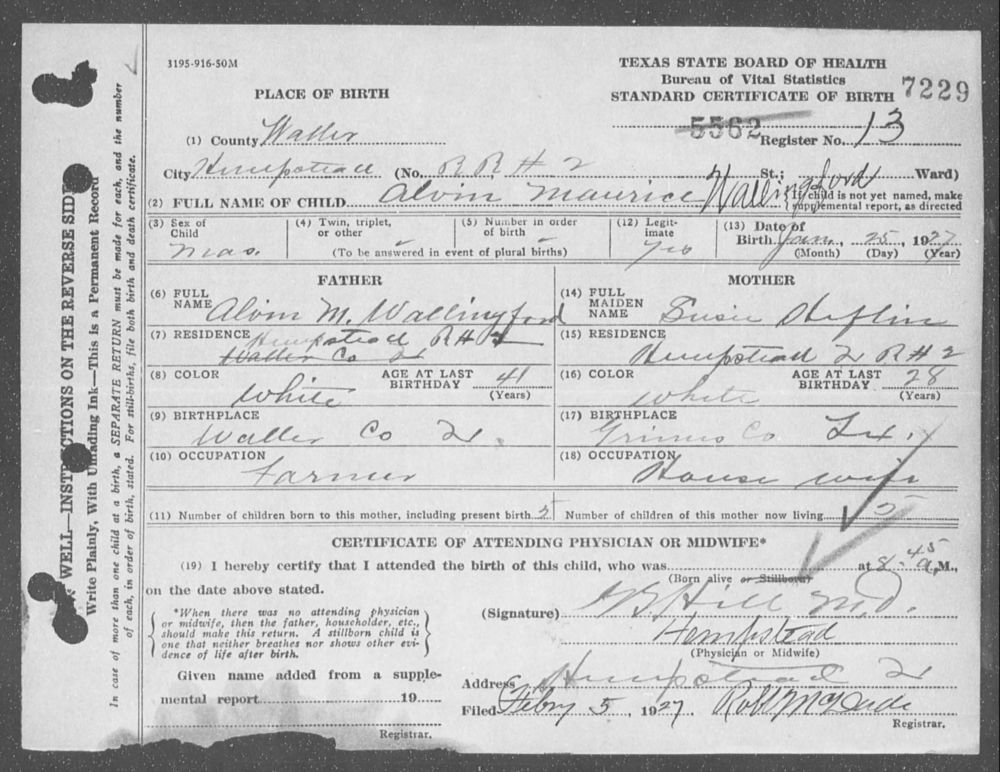 3195-916-50M
TEXAS STATE BOARD OF HEALTH
Bureau of Vital Statistics
STANDARD CERTIFICATE OF BIRTH 7229
PLACE OF BIRTH
5562
(1) County Waller Register No. 13
City Hempstead (No. R R # 2 St.; Ward)
(2) FULL NAME OF CHILD Alvin Maurice Wallingford
If child is not yet named, make supplemental report, as directed
(3) Sex of Child Mas.
(4) Twin, triplet, or other -
(5) Number in order of birth -
(To be answered in event of plural births)
(12) Legitimate Yes
(13) Date of Birth Jan., 25, 1927
(Month) (Day) (Year)
FATHER
(6) FULL NAME Alvin M. Wallingford
(7) RESIDENCE Hempstead R # 2
Waller Co
(8) COLOR White
AGE AT LAST BIRTHDAY 41
(Years)
(9) BIRTHPLACE Waller Co
(10) OCCUPATION Farmer
MOTHER
(14) FULL MAIDEN NAME Susie Heflin
(15) RESIDENCE Hempstead R # 2
(16) COLOR White
AGE AT LAST BIRTHDAY 28
(Years)
(17) BIRTHPLACE Grimes Co. Tex.
(18) OCCUPATION House wife
(11) Number of children born to this mother, including present birth 5
Number of children of this mother now living 5
CERTIFICATE OF ATTENDING PHYSICIAN OR MIDWIFE*
(19) I hereby certify that I attended the birth of this child, who was at 8-45 a. M.,
(Born alive or Stillborn)
on the date above stated.
*When there was no attending physician
or midwife, then the father, householder, etc.,
should make this return. A stillborn child is
one that neither breathes nor shows other evi-
dence of life after birth.
(Signature) Hill M.D.
Hempstead
(Physician or Midwife)
Given name added from a supple-
mental report 19
Registrar.
Address Hempstead
Filed Febry 5, 1927. Robt McDade
Registrar.
WELL—INSTRUCTIONS ON THE REVERSE SIDE
Write Plainly, With Unfading Ink—This is a Permanent Record
In case of more than one child at a birth, a SEPARATE RETURN must be made for each, and the number
of each, in order of birth, stated. For still-births, file both birth and death certificate.